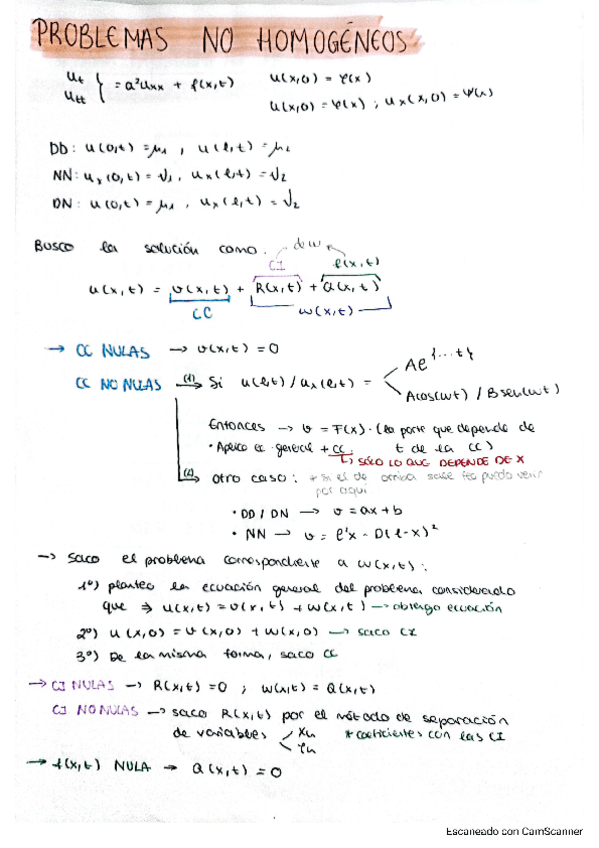 PROBLEMAS NO HOMOGÉNEOS
ut
utt } = a²uxx + f(x,t)
u(x,0) = φ(x)
u(x,0) = φ(x) ; ux(x,0) = ψ(x)
DD: u(0,t) = μ1 , u(l,t) = μ2
NN: ux(0,t) = ν1 , ux(l,t) = ν2
DN: u(0,t) = μ1 , ux(l,t) = ν2
Busco la solución como:
de w
CI f(x,t)
u(x,t) = v(x,t) + R(x,t) + Q(x,t)
CC w(x,t)
→ CC NULAS → v(x,t) = 0
CC NO NULAS (1)→ Si u(l,t) / ux(l,t) =
Ae^{...t}
A cos(wt) / B sen(wt)
Entonces → v = F(x) · (la parte que depende de
t de la CC)
• Aplico ec. general + CC
↳ SÓLO LO QUE DEPENDE DE X
(2)→ otro caso: * si el de arriba sale feo puedo venir
por aquí
• DD / DN → v = ax + b
• NN → v = x - D(l-x)²
→ Saco el problema correspondiente a w(x,t):
1º) planteo la ecuación general del problema considerando
que ⇒ u(x,t) = v(x,t) + w(x,t) → obtengo ecuación
2º) u(x,0) = v(x,0) + w(x,0) → saco CI
3º) De la misma forma, saco CC
→ CI NULAS → R(x,t) = 0 ; w(x,t) = Q(x,t)
CI NO NULAS → saco R(x,t) por el método de separación
de variables Xn * coeficientes con las CI
Tn
→ f(x,t) NULA → Q(x,t) = 0
Escaneado con CamScanner